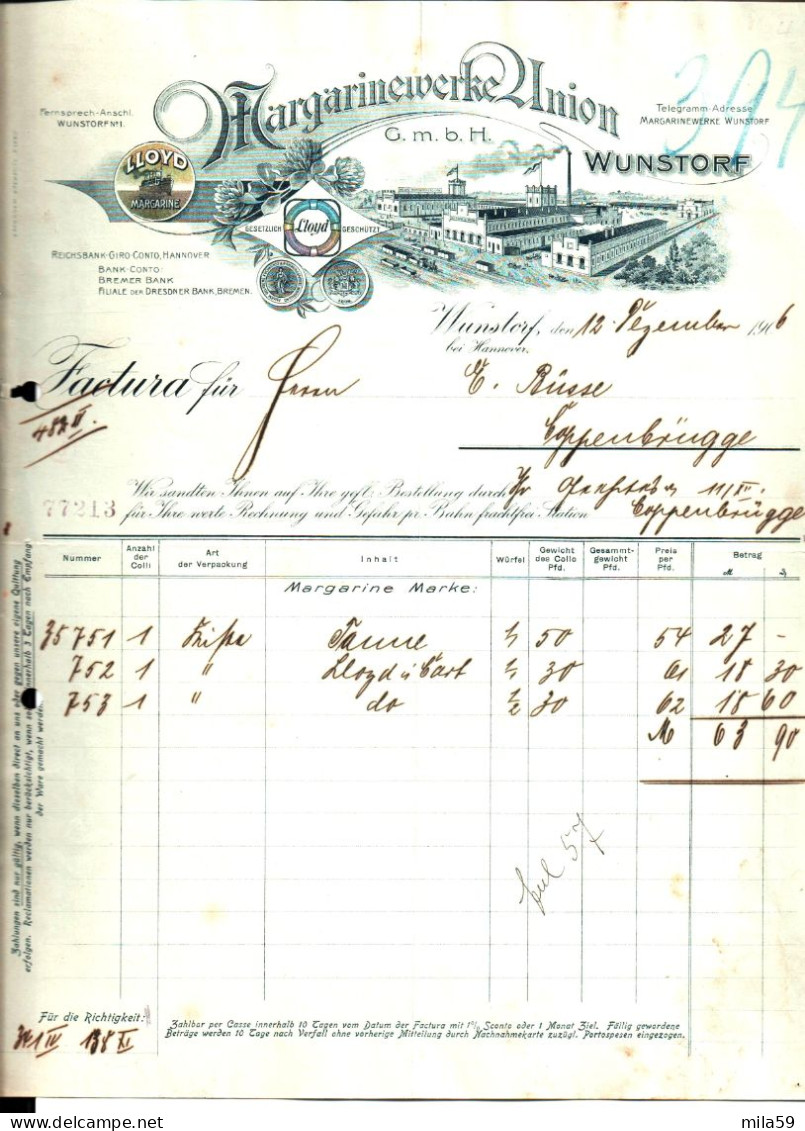 Margarinewerke Union
G. m. b. H.
WUNSTORF
Fernsprech-Anschl.
WUNSTORF No 1.
Telegramm-Adresse
MARGARINEWERKE WUNSTORF
LLOYD
MARGARINE
GESETZLICH Lloyd GESCHÜTZT
REICHSBANK-GIRO CONTO, HANNOVER
BANK-CONTO:
BREMER BANK
FILIALE DER DRESDNER BANK, BREMEN.
Wunstorf, den 12 Dezember 1906
bei Hannover.
Factura für Herrn E. Büsse
Coppenbrügge
77213
Wir sandten Ihnen auf Ihre gefl. Bestellung durch
für Ihre werte Rechnung und Gefahr pr. Bahn frachtfrei Station Coppenbrügge
Nummer Anzahl der Colli Art der Verpackung Inhalt Würfel Gewicht des Collo Pfd. Gesammt-gewicht Pfd. Preis per Pfd. Betrag
M ₰
Margarine Marke:
35751 1 Kiste Tanne 1/1 50 54 27 -
752 1 " Lloyd 1/1 30 61 18 30
753 1 " do 1/2 30 62 18 60
M 63 90
Zahlungen sind nur gültig, wenn dieselben direct an uns oder gegen unsere eigene Quittung
erfolgen. Reclamationen werden nur berücksichtigt, wenn innerhalb 3 Tagen nach Empfang
der Ware gemacht werden.
Für die Richtigkeit:
Zahlbar per Casse innerhalb 10 Tagen vom Datum der Factura mit 1% Sconto oder 1 Monat Ziel. Fällig gewordene
Beträge werden 10 Tage nach Verfall ohne vorherige Mitteilung durch Nachnahmekarte zuzügl. Portospesen eingezogen.
DELCAMPE.NET
mila59